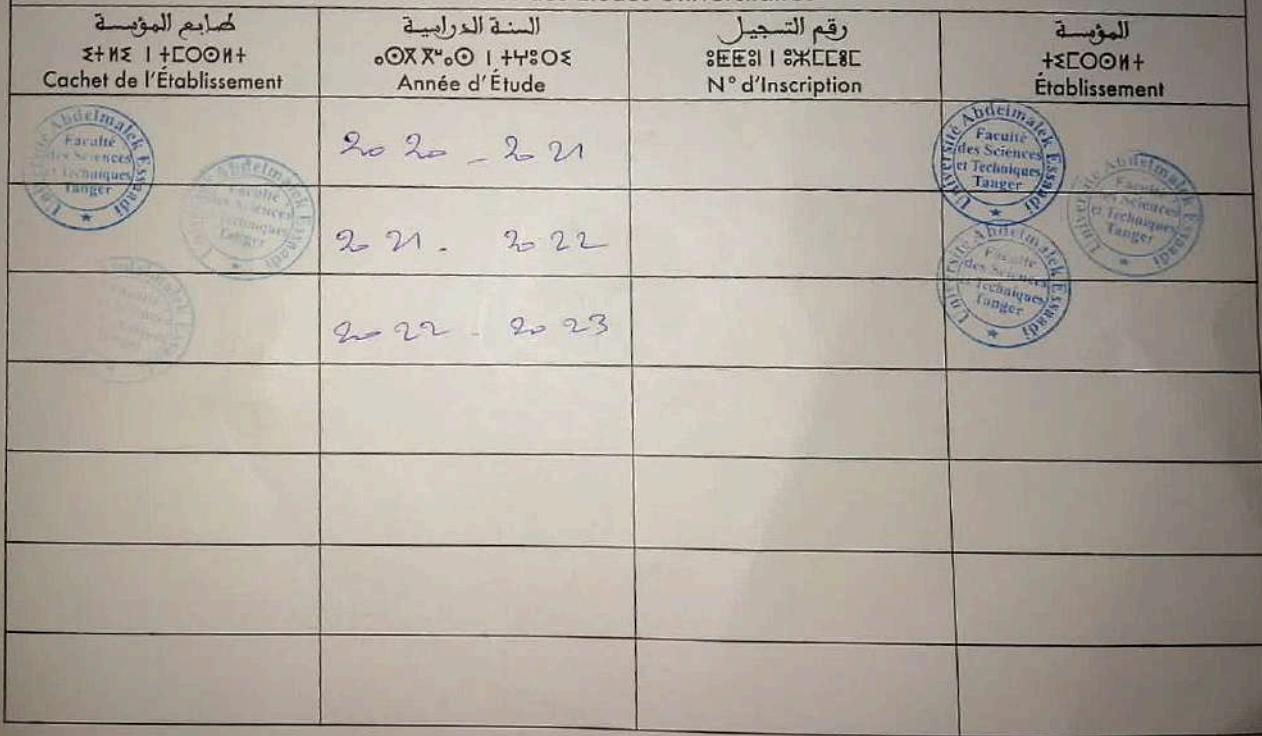 des Études Universitaires
طابع المؤسسة
ⵉⵜⵍⵉ ⵏ ⵜⵎⵔⵙⵍⵜ
Cachet de l'Établissement
السنة الدراسية
ⴰⵙⴳⴳⵯⴰⵙ ⵏ ⵜⵖⵓⵔⵉ
Année d'Étude
رقم التسجيل
ⵓⵟⵟⵓⵏ ⵏ ⵓⵣⵎⵎⵓⵎ
N° d'Inscription
المؤسسة
ⵜⵉⵎⵔⵙⵍⵜ
Établissement
Université Abdelmalek Essaadi
Faculté
des Sciences
et Techniques
Tanger
2020 - 2021
Université Abdelmalek Essaadi
Faculté
des Sciences
et Techniques
Tanger
Abdelm
Faculté
des Sciences
Techniques
Tanger
2021 - 2022
Université Abdelmalek Essaadi
Faculté
des Sciences
et Techniques
Tanger
2022 - 2023
Université Abdelmalek Essaadi
Faculté
des Sciences
et Techniques
Tanger